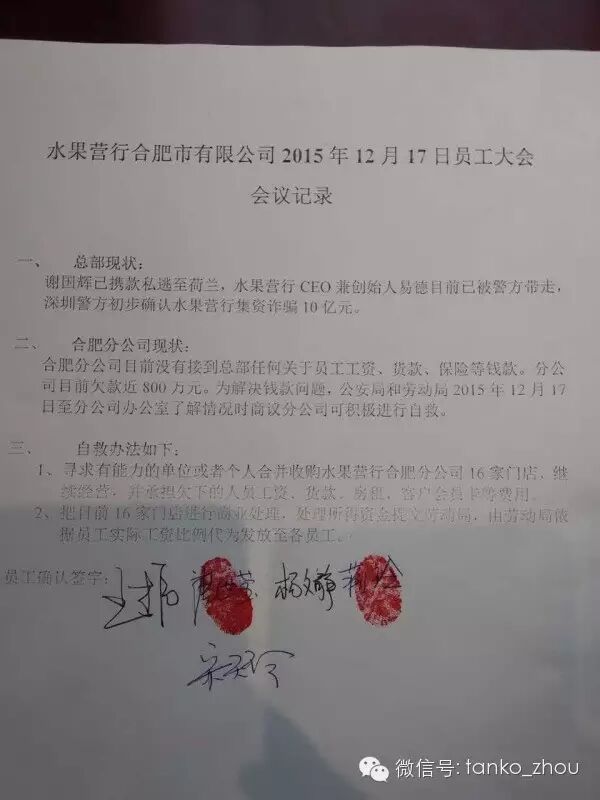 水果营行合肥市有限公司 2015 年 12 月 17 日员工大会
会议记录
一、 总部现状：
谢国辉已携款私逃至荷兰，水果营行 CEO 兼创始人易德目前已被警方带走，
深圳警方初步确认水果营行集资诈骗 10 亿元。
二、 合肥分公司现状：
合肥分公司目前没有接到总部任何关于员工工资、货款、保险等钱款。分公
司目前欠款近 800 万元。为解决钱款问题，公安局和劳动局 2015 年 12 月 17
日至分公司办公室了解情况时商议分公司可积极进行自救。
三、 自救办法如下：
1、寻求有能力的单位或者个人合并收购水果营行合肥分公司 16 家门店，继
续经营，并承担欠下的人员工资、货款、房租、客户会员卡等费用。
2、把目前 16 家门店进行商业处理，处理所得资金提交劳动局，由劳动局依
据员工实际工资比例代为发放至各员工。
员工确认签字：
微信号: tanko_zhou